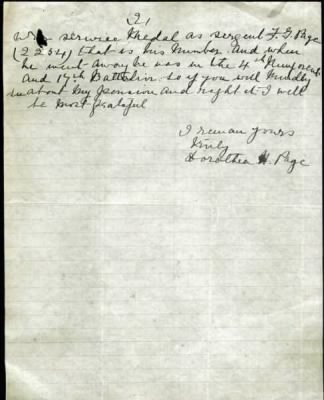 2/
War service Medal as sergent F. G. Page
(2254) that is his Number and when
he went away he was in the 4th
and 17th Battelion so if you will kindly
about my pension and right it I will
be most grateful
I reman yours
truly
Dorothea H. Page